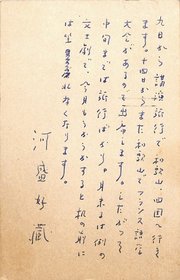 九日から講演旅行で和歌山、四国へ行き
ます。十四日からまた和歌山でフランス語学
大会があるので出席します。したがって
中旬までは旅行ばかり。月末は例の
文士劇で、今月もうかうかすると机の前に
は坐れなくなります。
河盛好蔵